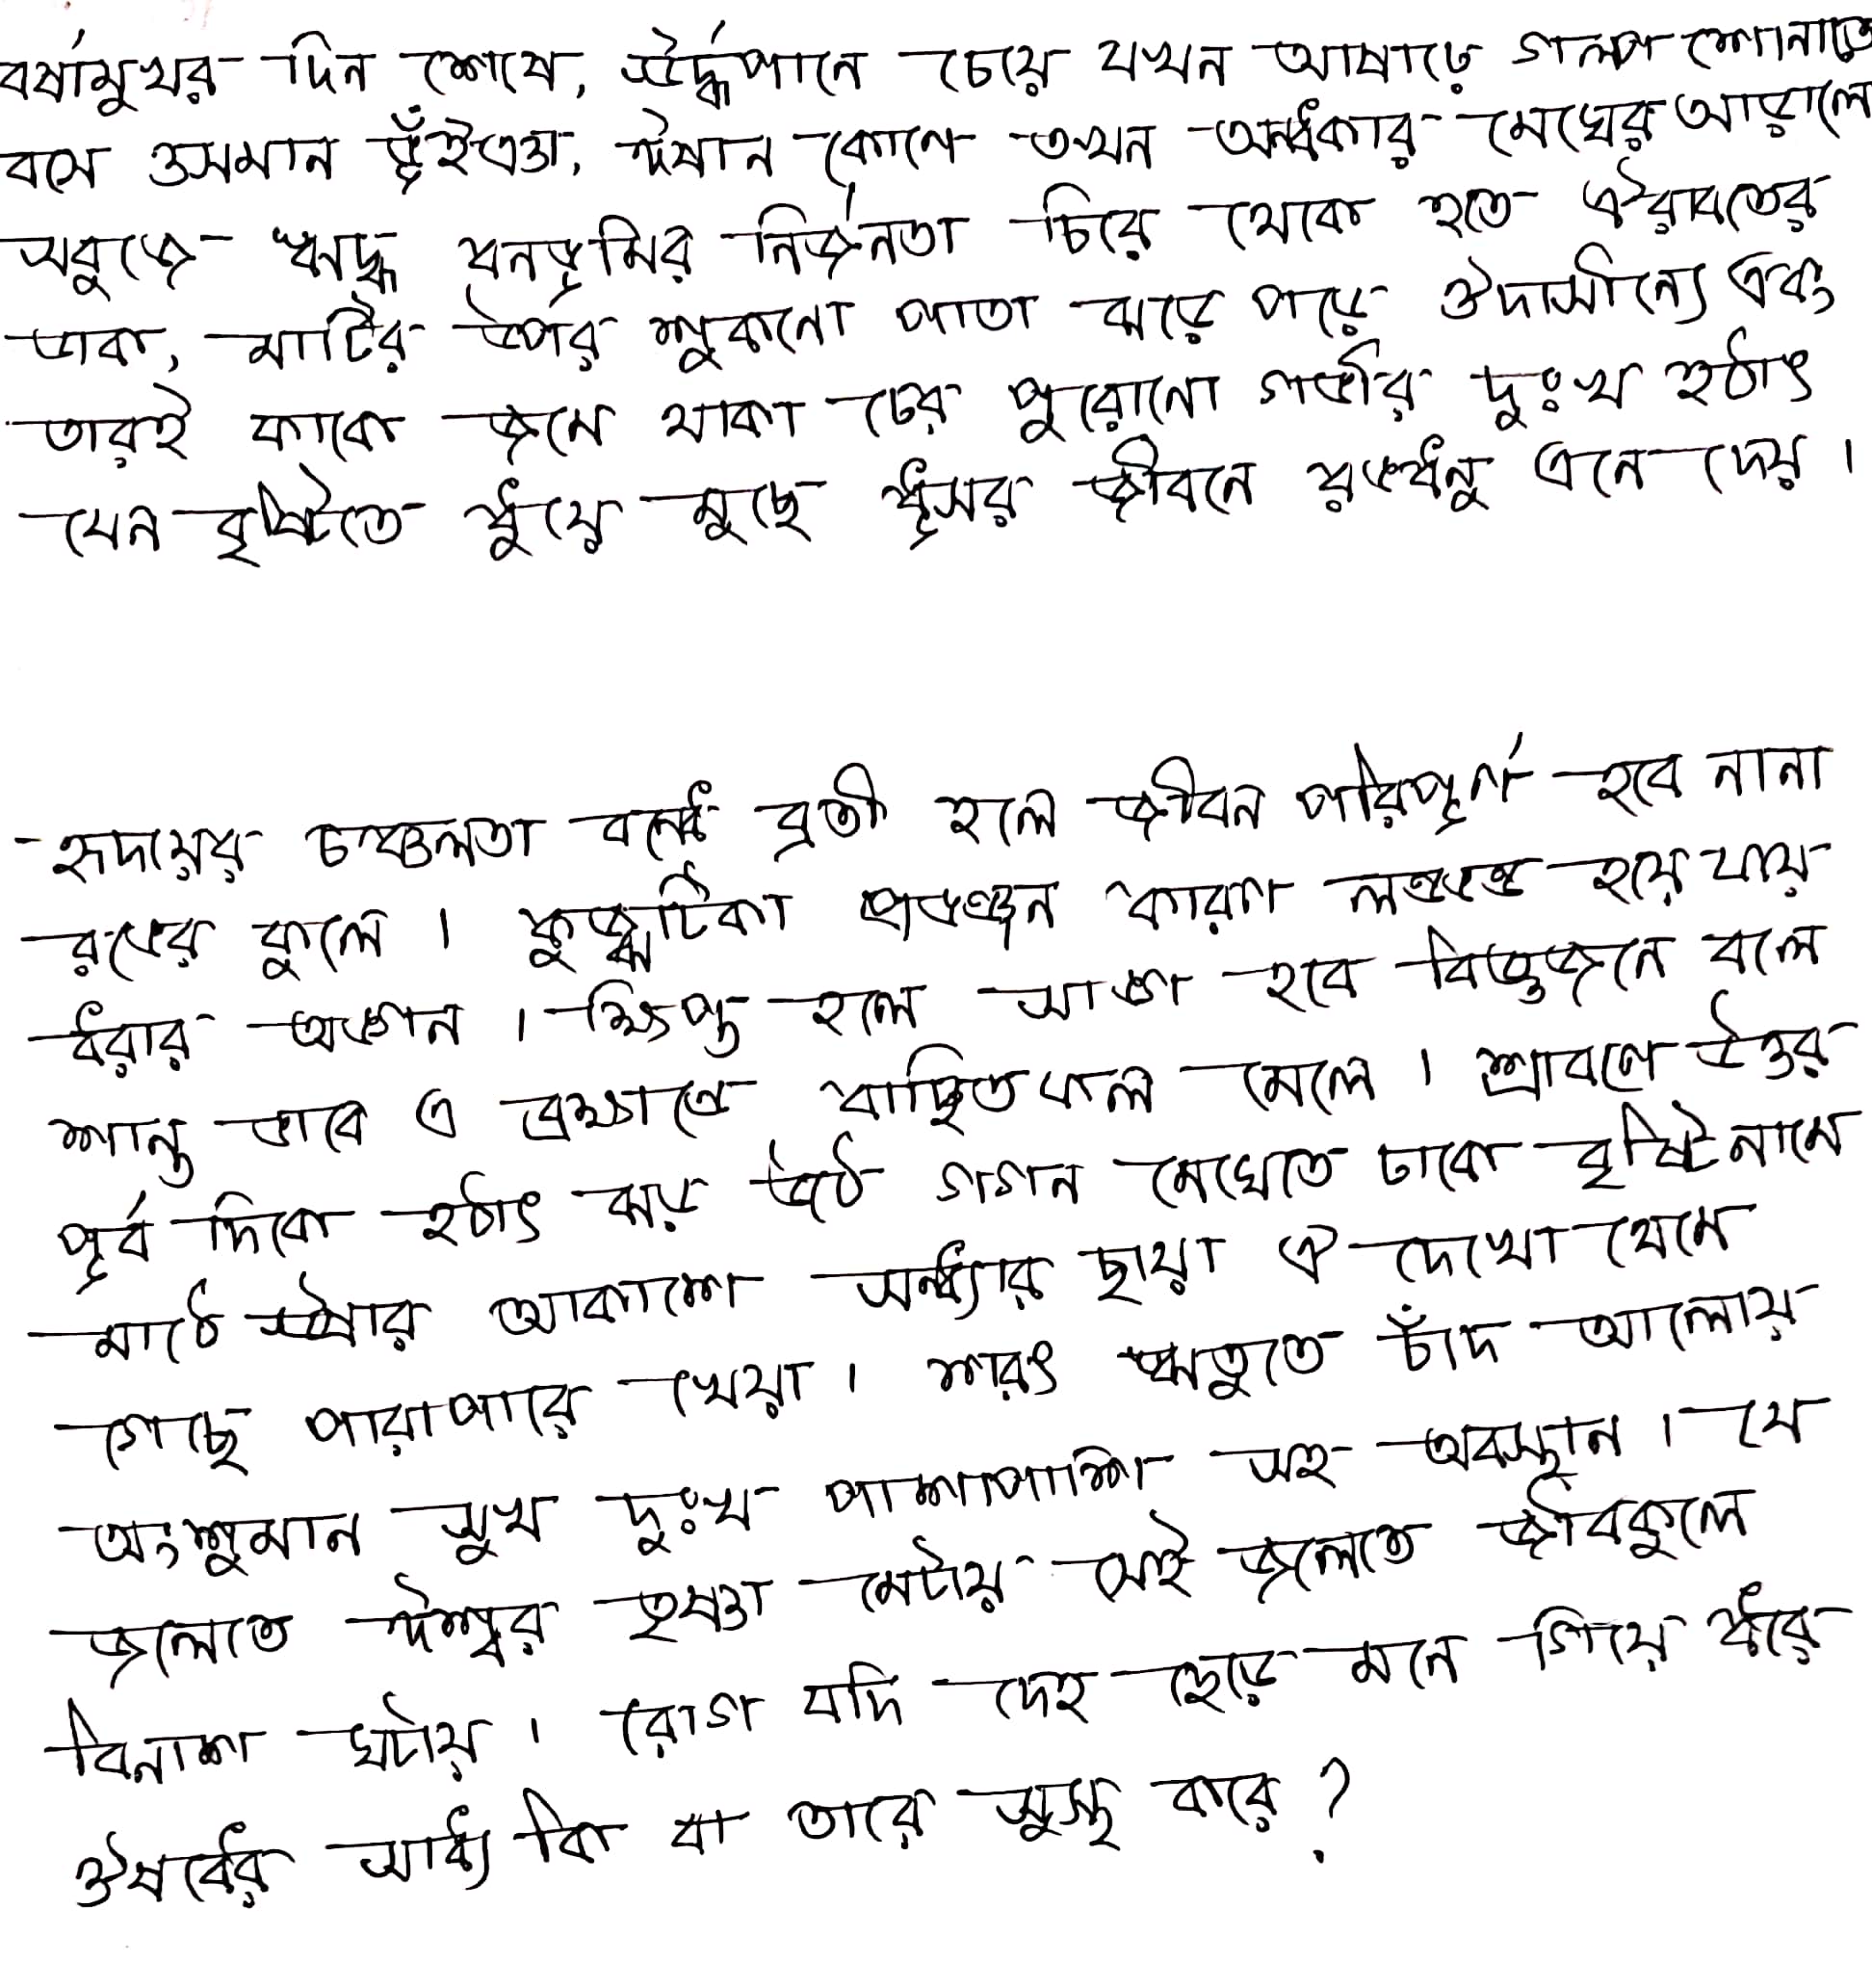 বর্ষামুখর দিন শেষে, ঊর্দ্ধপানে চেয়ে যখন আষাঢ়ে গল্প শোনাতে
বসে ওসমান ভুঁইঞা, ঈষান কোণে তখন অন্ধকার মেঘের আড়ালে
সবুজে ঋদ্ধ বনভূমির নির্জনতা চিরে থেকে হতে ঐরাবতের
ডাক, মাটির উপর শুকনো পাতা ঝড়ে পড়ে ঔদাসীন্যে এবং
তারই ফাকে জমে থাকা ঢের পুরোনো গভীর দুঃখ হঠাৎ
যেন বৃষ্টিতে ধুঁয়ে মুছে ধূসর জীবনে রঙধনু এনে দেয়।
হৃদয়ের চঞ্চলতা বন্ধে ব্রতী হলে জীবন পরিপূর্ণ হবে নানা
রঙের ফুলে। কুজ্ঝটিকা প্রভঞ্জন কারণ লণ্ডভণ্ড হয়ে যায়
ধরার অঙ্গন। ক্ষিপ্ত হলে সাঙ্গ হবে বিজ্ঞজনে বলে
শান্ত ভাবে এ ব্রহ্মাণ্ডে বাঞ্ছিত ফল মেলে। শ্রাবণে উত্তর
পূর্ব দিকে হঠাৎ ঝড় উঠে গগন মেঘেতে ঢাকে বৃষ্টি নামে
মাঠে ঊষার আকাশে সন্ধ্যার ছায়া ঐ দেখো থেমে
গেছে পারাপারে খেয়া। শরৎ ঋতুতে চাঁদ আলোয়
অংশুমান সুখ দুঃখ পাশাপাশি সহ অবস্থান। যে
জলেতে ঈশ্বর তৃষ্ণা মেটায় সেই জলেতে জীবকুলে
বিনাশ ঘটায়। রোগ যদি দেহ ছেড়ে মনে গিয়ে ধরে
ঔষধের সাধ্য কি বা তারে সুস্থ করে?